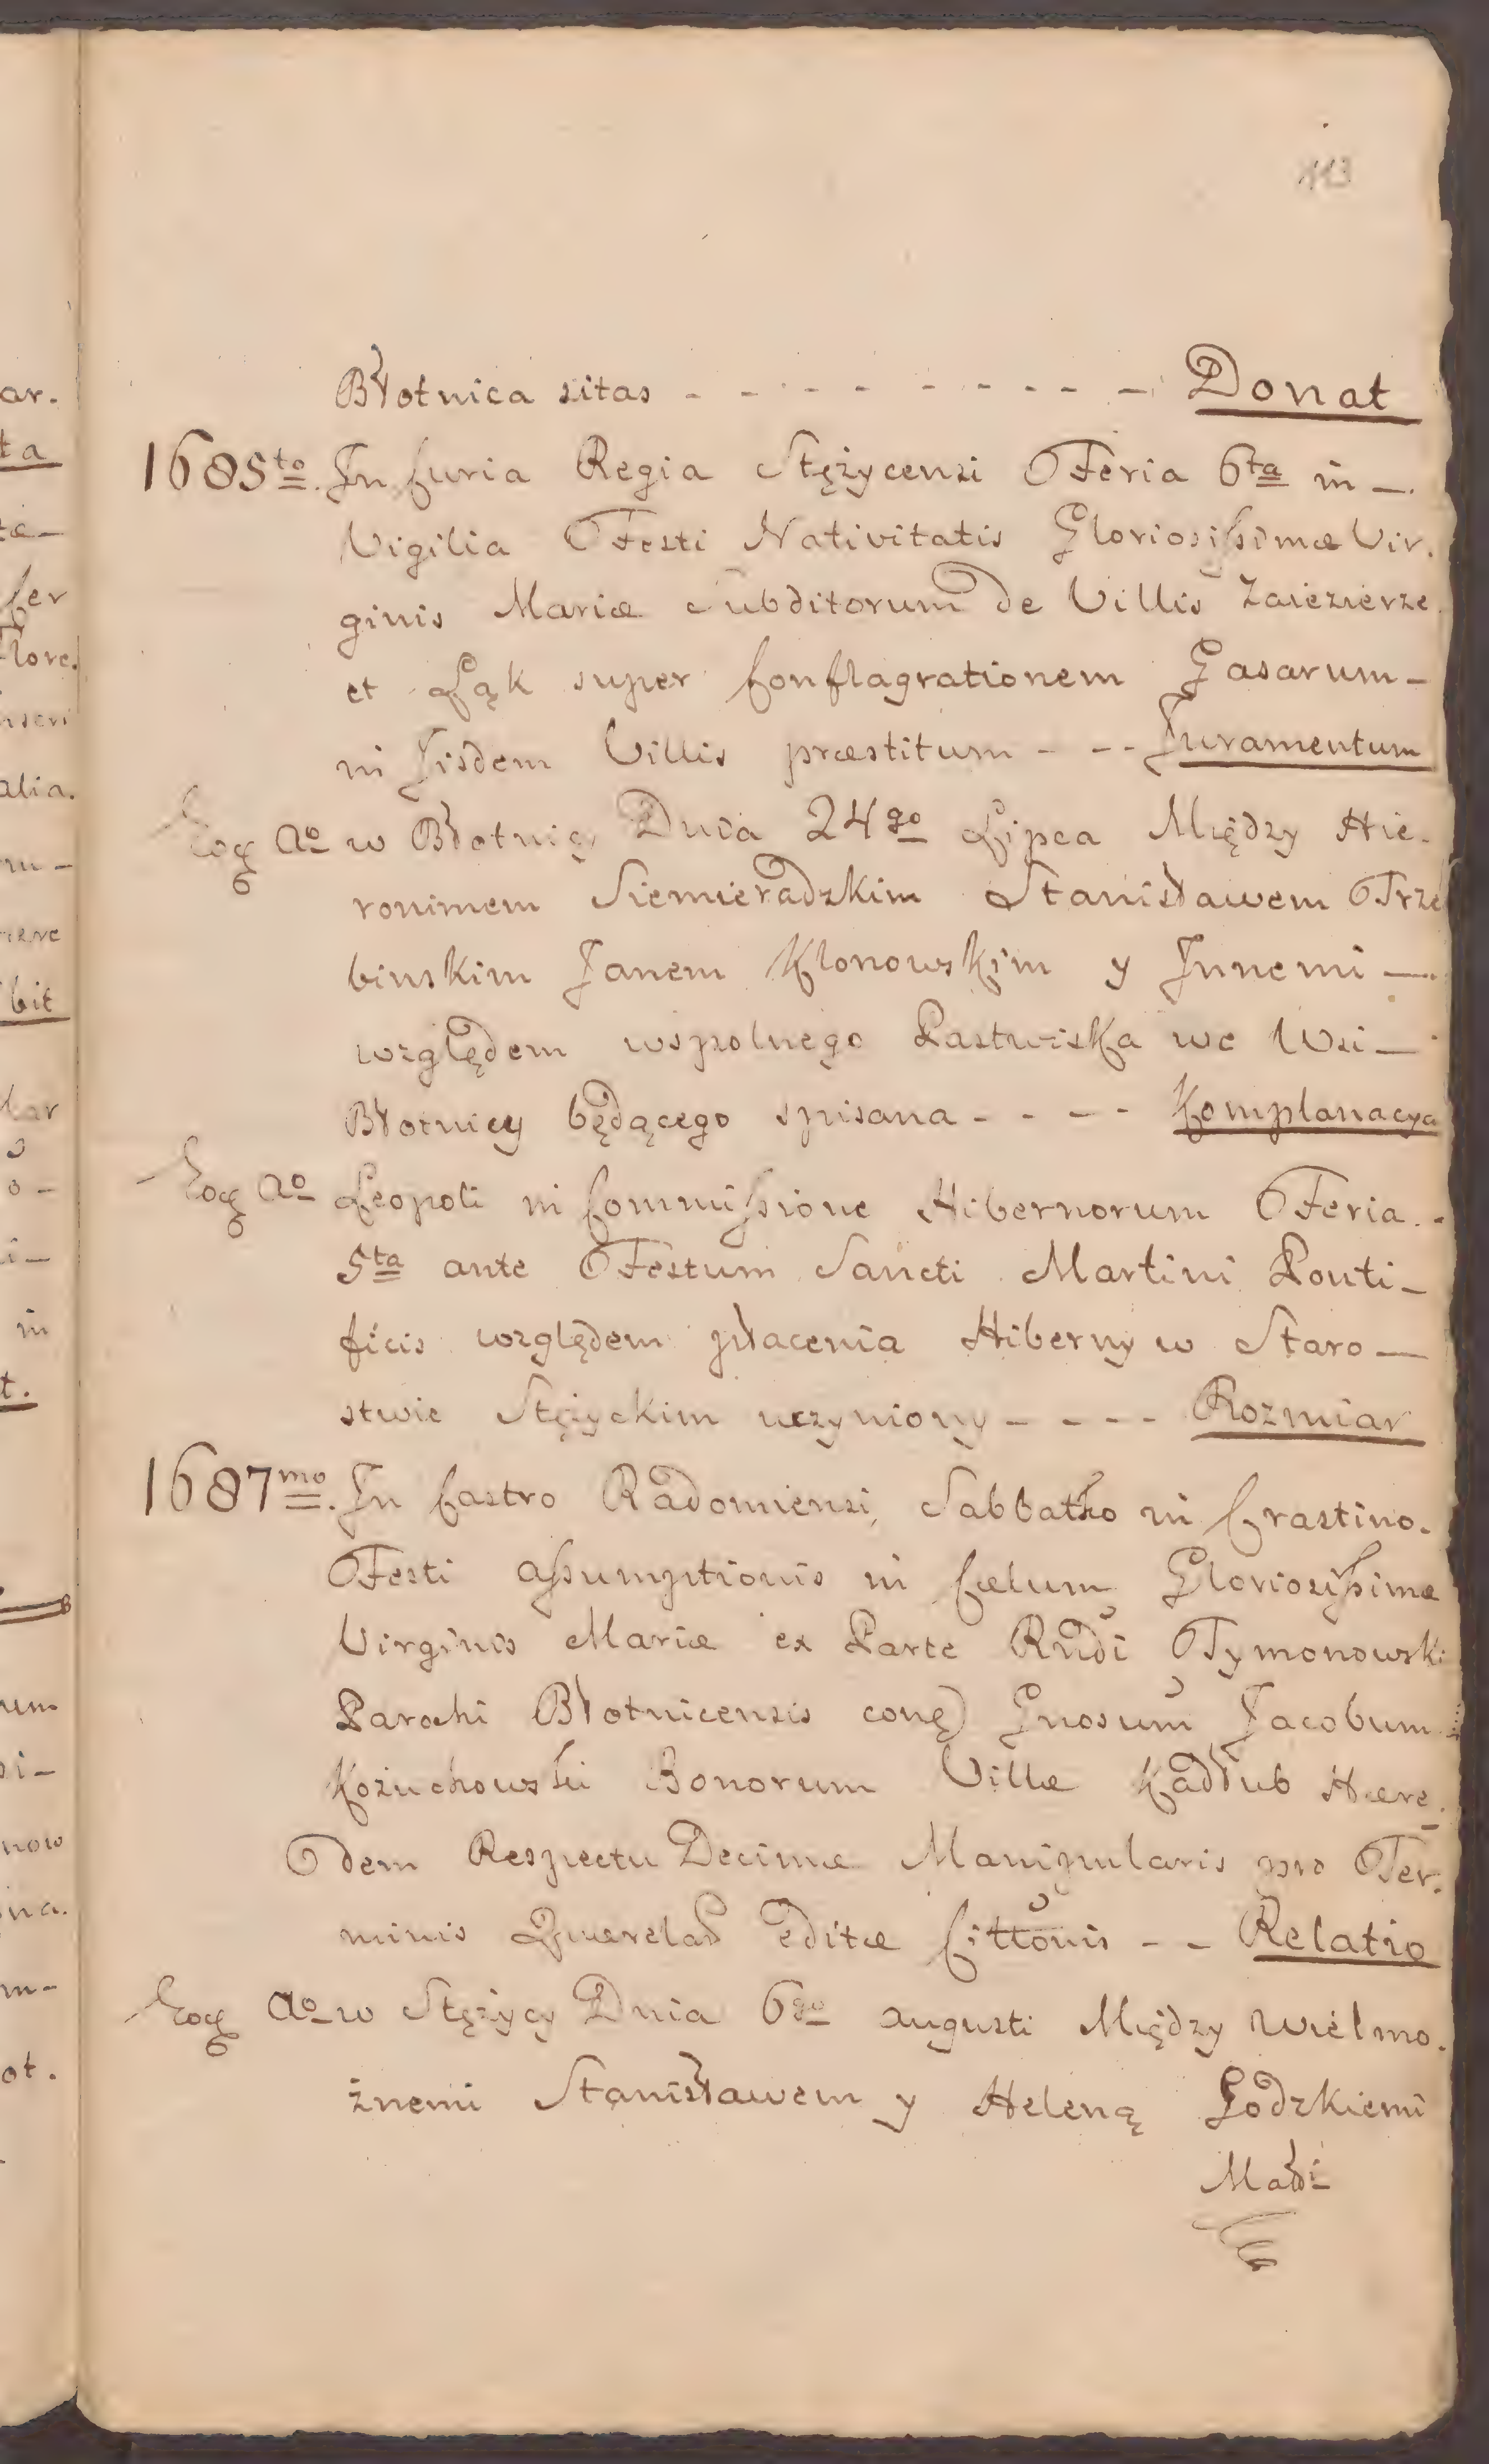 113
Błotnica sitas - - - - - - - - - Donat
1685to. In Curia Regia Stężycensi Feria 6ta in —
Vigilia Festi Nativitatis Gloriosissimæ Vir.
ginis Mariæ Subditorum de Villis Zaiezierze
et Łąk super Conflagrationem Casarum —
in Iisdem Villis præstitum - - - Juramentum
Eoq Ao w Błotnicy Dnia 24go Lipca Między Hie.
ronimem Siemieradzkim Stanisławem Trze
binskim Janem Klonowskim y Innemi —
względem wspolnego Pastwiska we Wsi —
Błotnicy będącego spisana - - - - Komplanacya
Eoq Ao Leopoli in Commissione Hibernorum Feria . -
5ta ante Festum Sancti Martini Ponti —
ficis względem płacenia Hiberny w Staro —
stwie Stężyckim uczyniony - - - - Rozmiar
1687mo. In Castro Radomiensi, Sabbatho in Crastino.
Festi Assumptionis in Cælum Gloriosissimæ
Virginis Mariæ ex Parte Rndi Tymonowski
Parochi Błotnicensis conq Gnosum Jacobum
Kożuchowski Bonorum Villæ Kadłub Hære.
dem Respectu Decimæ Manipularis pro Ter.
minis Querelar editæ Cittonis - - Relatio
Eoq Ao w Stężycy Dnia 6go Augusti Między Wielmo.
żnemi Stanisławem y Heleną Godzkiemi